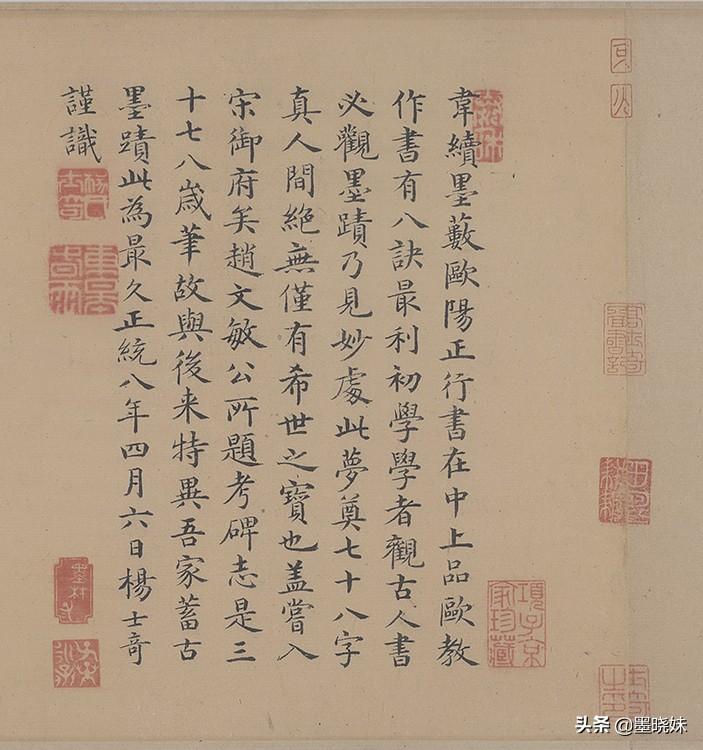 韋續墨藪歐陽正行書在中上品歐教
作書有八訣最利初學學者觀古人書
必觀墨蹟乃見妙處此夢奠七十八字
真人間絕無僅有希世之寶也盖嘗入
宋御府矣趙文敏公所題考碑志是三
十七八歲筆故與後来特異吾家蓄古
墨蹟此為最久正統八年四月六日楊士竒
謹識
項子京
家珍藏
墨林
头条 @墨晓妹